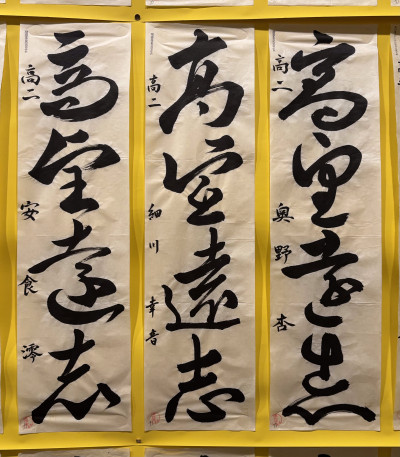 高遠志
高二 奥野杏
高遠志
高二 細川幸音
高遠志
高二 安食澪